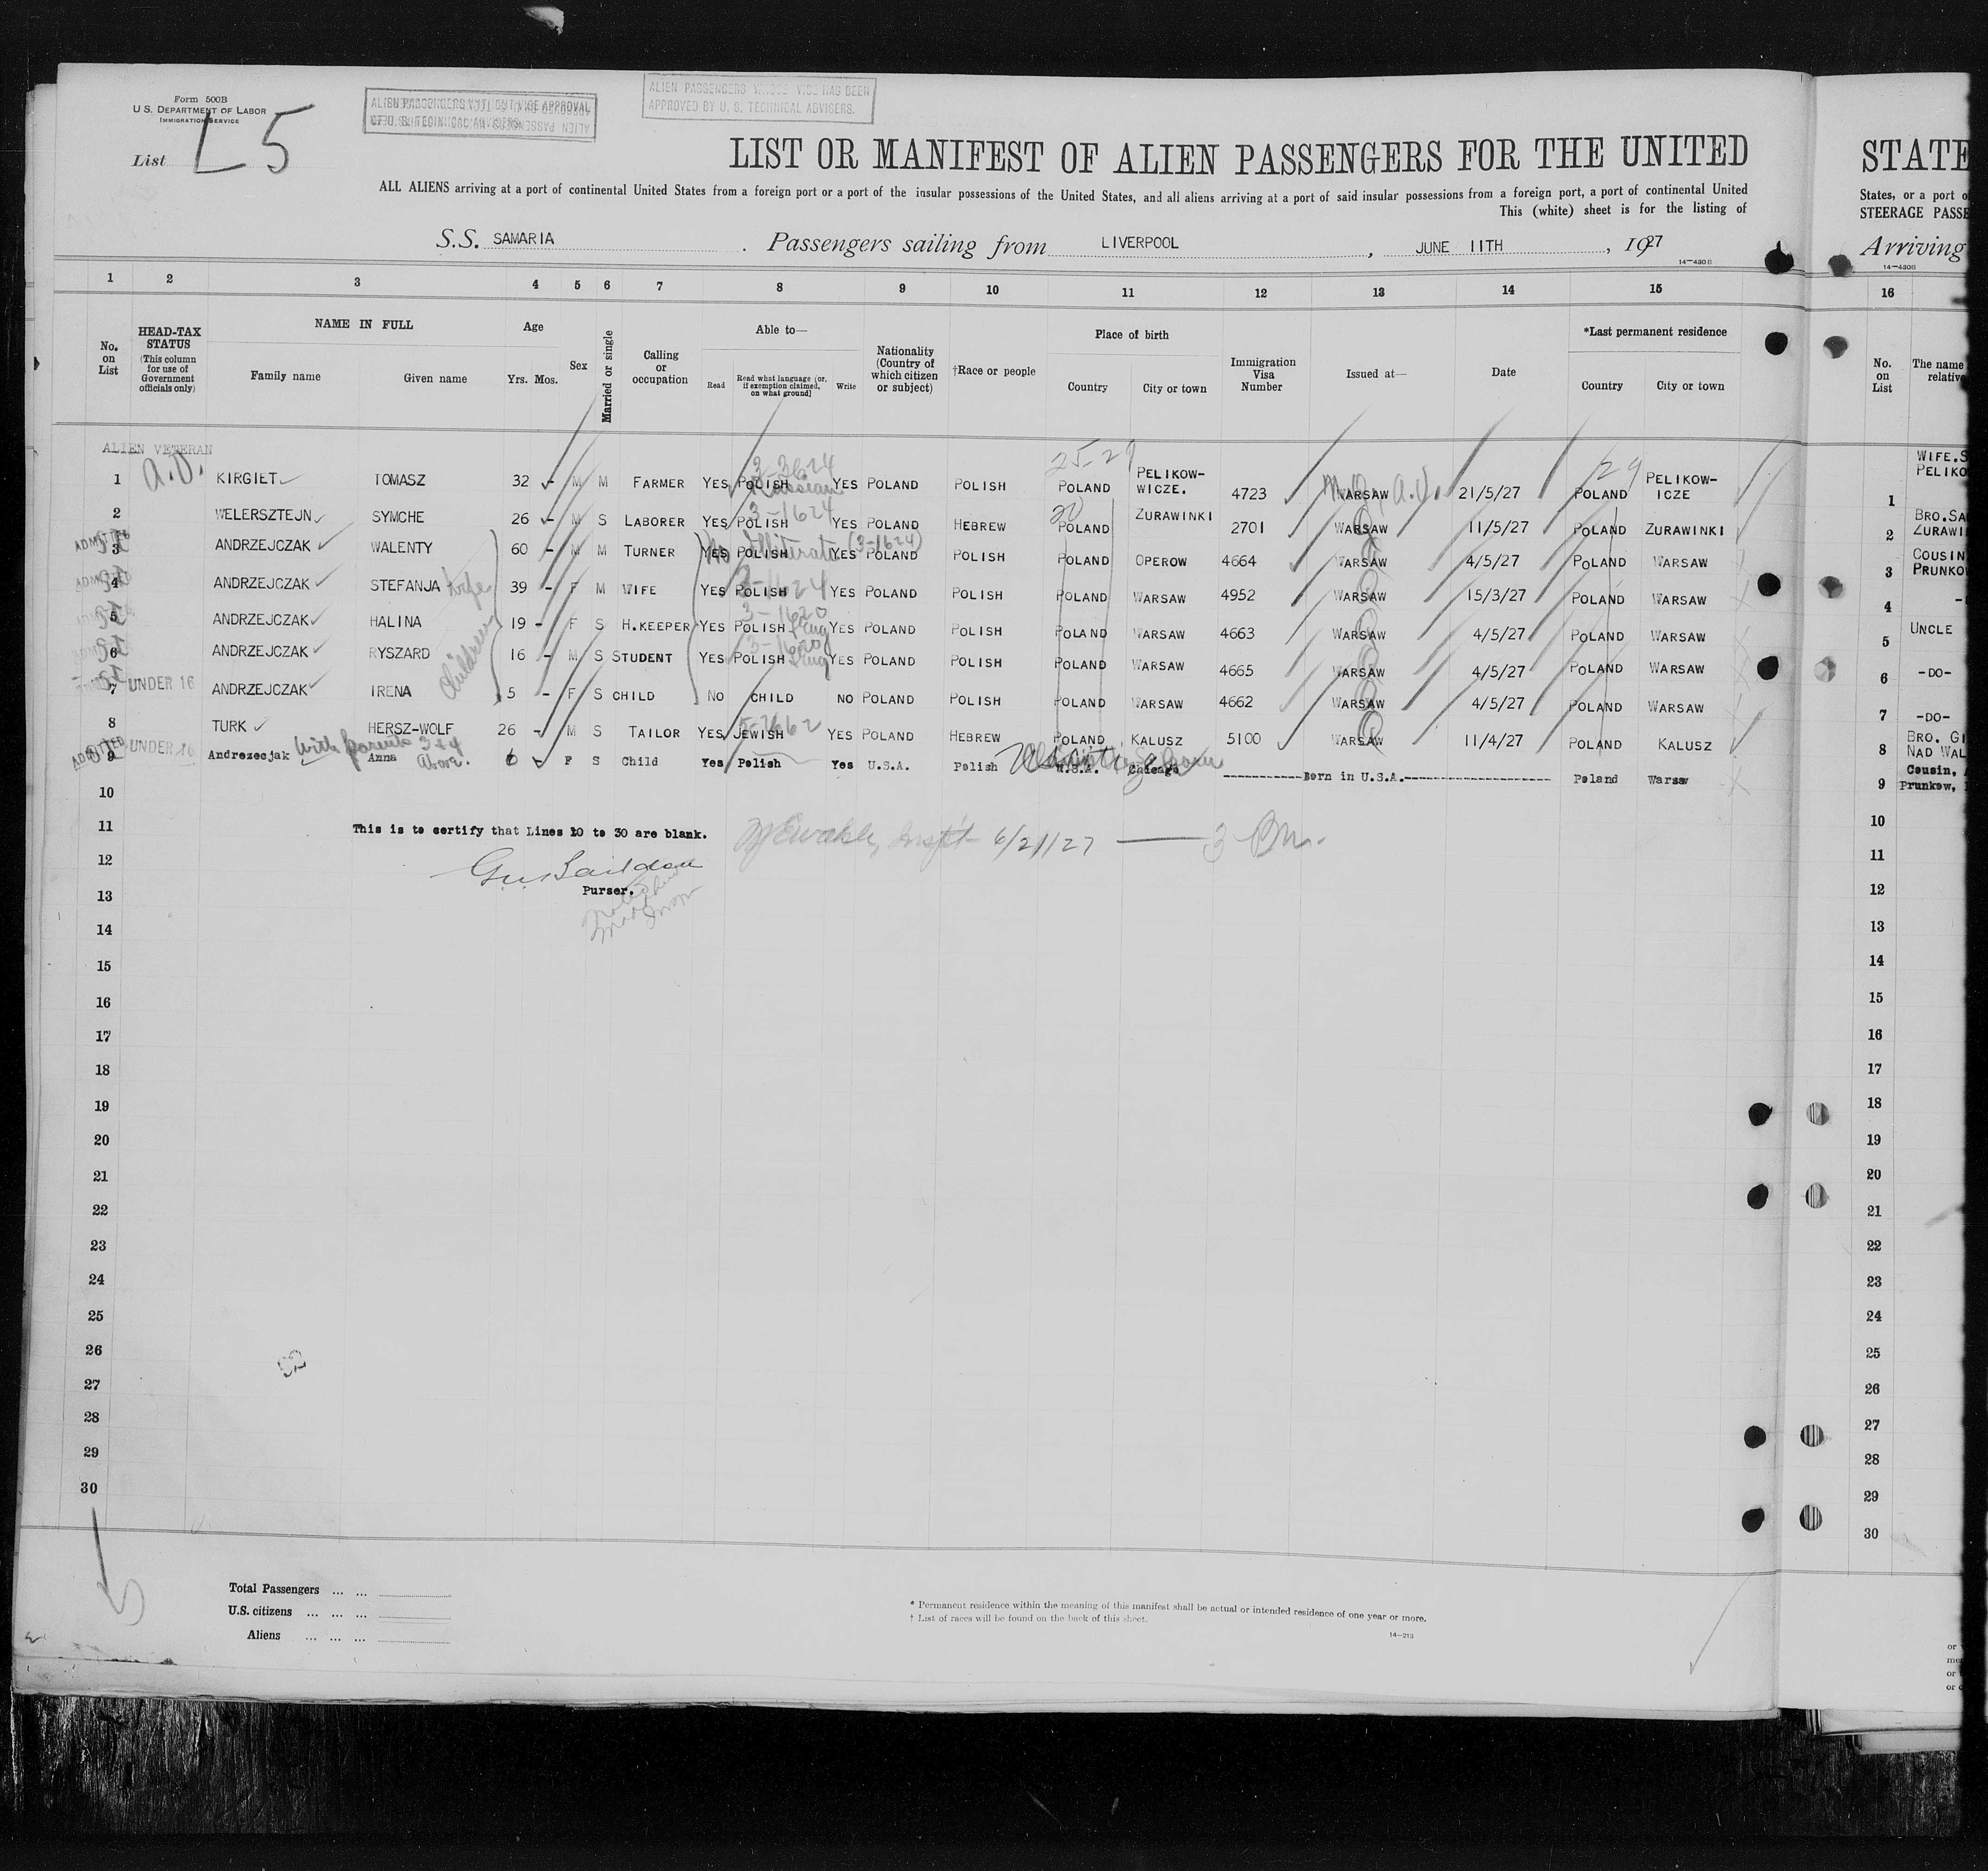 Form 500B
U.S. DEPARTMENT OF LABOR
IMMIGRATION SERVICE
List L5
ALIEN PASSENGERS WITHOUT VISE APPROVAL
OF U.S. TECHNICAL ADVISERS
ALIEN PASSENGERS WHOSE VISE HAS BEEN
APPROVED BY U. S. TECHNICAL ADVISERS.
LIST OR MANIFEST OF ALIEN PASSENGERS FOR THE UNITED STATE
ALL ALIENS arriving at a port of continental United States from a foreign port or a port of the insular possessions of the United States, and all aliens arriving at a port of said insular possessions from a foreign port, a port of continental United States, or a port o
This (white) sheet is for the listing of STEERAGE PASSE
S.S. SAMARIA . Passengers sailing from LIVERPOOL , JUNE 11TH , 1927 Arriving
14-430B 14-430B
1 2 3 4 5 6 7 8 9 10 11 12 13 14 15 16
No. on List
HEAD-TAX STATUS
(This column for use of Government officials only)
NAME IN FULL
Family name Given name
Age
Yrs. Mos.
Sex
Married or single
Calling or occupation
Able to—
Read Read what language (or, if exemption claimed, on what ground) Write
Nationality (Country of which citizen or subject)
†Race or people
Place of birth
Country City or town
Immigration Visa Number
Issued at—
Date
*Last permanent residence
Country City or town
No. on List
The name
relative
ALIEN VETERAN
25-29
1 A.V. KIRGIET TOMASZ 32 - M M FARMER YES 3-3624 POLISH Russian YES POLAND POLISH POLAND PELIKOW-WICZE. 4723 WARSAW A.V. 21/5/27 29 POLAND PELIKOW-ICZE 1 WIFE.S PELIKO
2 WELERSZTEJN SYMCHE 26 - M S LABORER YES 3-1624 POLISH YES POLAND HEBREW 20 POLAND ZURAWINKI 2701 WARSAW 11/5/27 POLAND ZURAWINKI 2 BRO.SA ZURAWI
ADMITTED 3 ANDRZEJCZAK WALENTY 60 - M M TURNER YES No POLISH Illiterate (3-1624) YES POLAND POLISH POLAND OPEROW 4664 WARSAW 4/5/27 POLAND WARSAW 3 COUSIN PRUNKOW
ADMITTED 4 ANDRZEJCZAK STEFANJA wife 39 - F M WIFE YES 3-1624 POLISH YES POLAND POLISH POLAND WARSAW 4952 WARSAW 15/3/27 POLAND WARSAW 4 -
5 ANDRZEJCZAK HALINA children 19 - F S H.KEEPER YES 3-1620 POLISH Eng YES POLAND POLISH POLAND WARSAW 4663 WARSAW 4/5/27 POLAND WARSAW 5 UNCLE
6 ANDRZEJCZAK RYSZARD 16 - M S STUDENT YES 3-1620 POLISH Eng YES POLAND POLISH POLAND WARSAW 4665 WARSAW 4/5/27 POLAND WARSAW 6 -DO-
7 UNDER 16 ANDRZEJCZAK IRENA 5 - F S CHILD NO CHILD NO POLAND POLISH POLAND WARSAW 4662 WARSAW 4/5/27 POLAND WARSAW 7 -DO-
8 TURK HERSZ-WOLF 26 - M S TAILOR YES 5-2662 JEWISH YES POLAND HEBREW POLAND KALUSZ 5100 WARSAW 11/4/27 POLAND KALUSZ 8 BRO. GI NAD WAL
ADMITTED 9 UNDER 16 Andrezecjak with parents 3+4 above. Anna 6 - F S Child Yes Polish Yes U.S.A. Polish U.S.A. Chicago ------------Born in U.S.A.------------ Poland Warsaw 9 Cousin, Prunkow,
10 10
11 This is to certify that Lines 10 to 30 are blank. 6/21/27 — 3 11
12 12
13 Purser. 13
14 14
15 15
16 16
17 17
18 18
19 19
20 20
21 21
22 22
23 23
24 24
25 25
26 26
27 27
28 28
29 29
30 30
Total Passengers ... ...
U.S. citizens ... ... ...
Aliens ... ... ...
* Permanent residence within the meaning of this manifest shall be actual or intended residence of one year or more.
† List of races will be found on the back of this sheet.
14-213